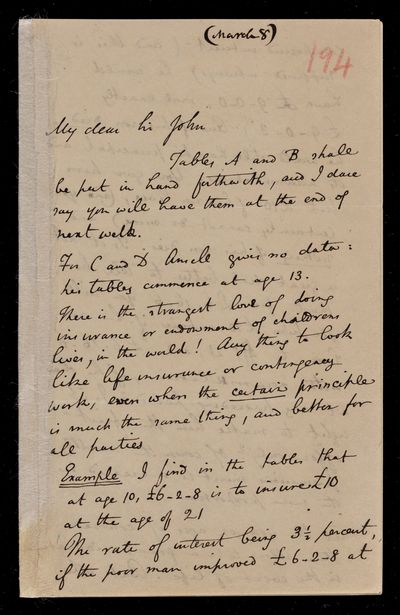 (March 8)
194
My dear Sir John
Tables A and B shall
be put in hand forthwith, and I dare
say you will have them at the end of
next week.
For C and D Ansell gives no data:
his tables commence at age 13.
There is the strangest love of doing
insurance or endowment of childrens
lives, in the world! Any thing to look
like life insurance or contingency
work, even when the certain principle
is much the same thing, and better for
all parties
Example I find in the tables that
at age 10, £6-2-8 is to insure £10
at the age of 21
The rate of interest being 3½ percent,
if the poor man improved £6-2-8 at